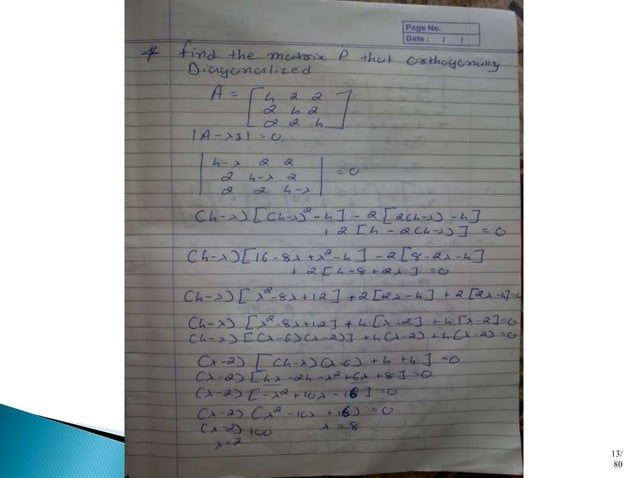 Page No.
Date : / /
* find the matrix P that orthogonally
Diagonalized
A = [ 4 2 2
2 4 2
2 2 4 ]
|A-λI| = 0
| 4-λ 2 2
2 4-λ 2
2 2 4-λ | = 0
(4-λ)[(4-λ)²-4] - 2[2(4-λ) -4]
+ 2[4 - 2(4-λ)] = 0
(4-λ)[16-8λ+λ²-4] -2[8-2λ-4]
+ 2[4-8+2λ] = 0
(4-λ)[λ²-8λ+12] +2[2λ-4] +2[2λ-4]=0
(4-λ) [λ²-8λ+12] +4[λ-2]+4[λ-2]=0
(4-λ)[(λ-6)(λ-2)] +4(λ-2) +4(λ-2) =0
(λ-2) [(4-λ)(λ-6) +4+4] =0
(λ-2)[4λ-24-λ²+6λ+8] =0
(λ-2)[-λ²+10λ-16] =0
(λ-2)(λ²-10λ+16) =0
(λ-2) λ=8
λ=2
13/
80